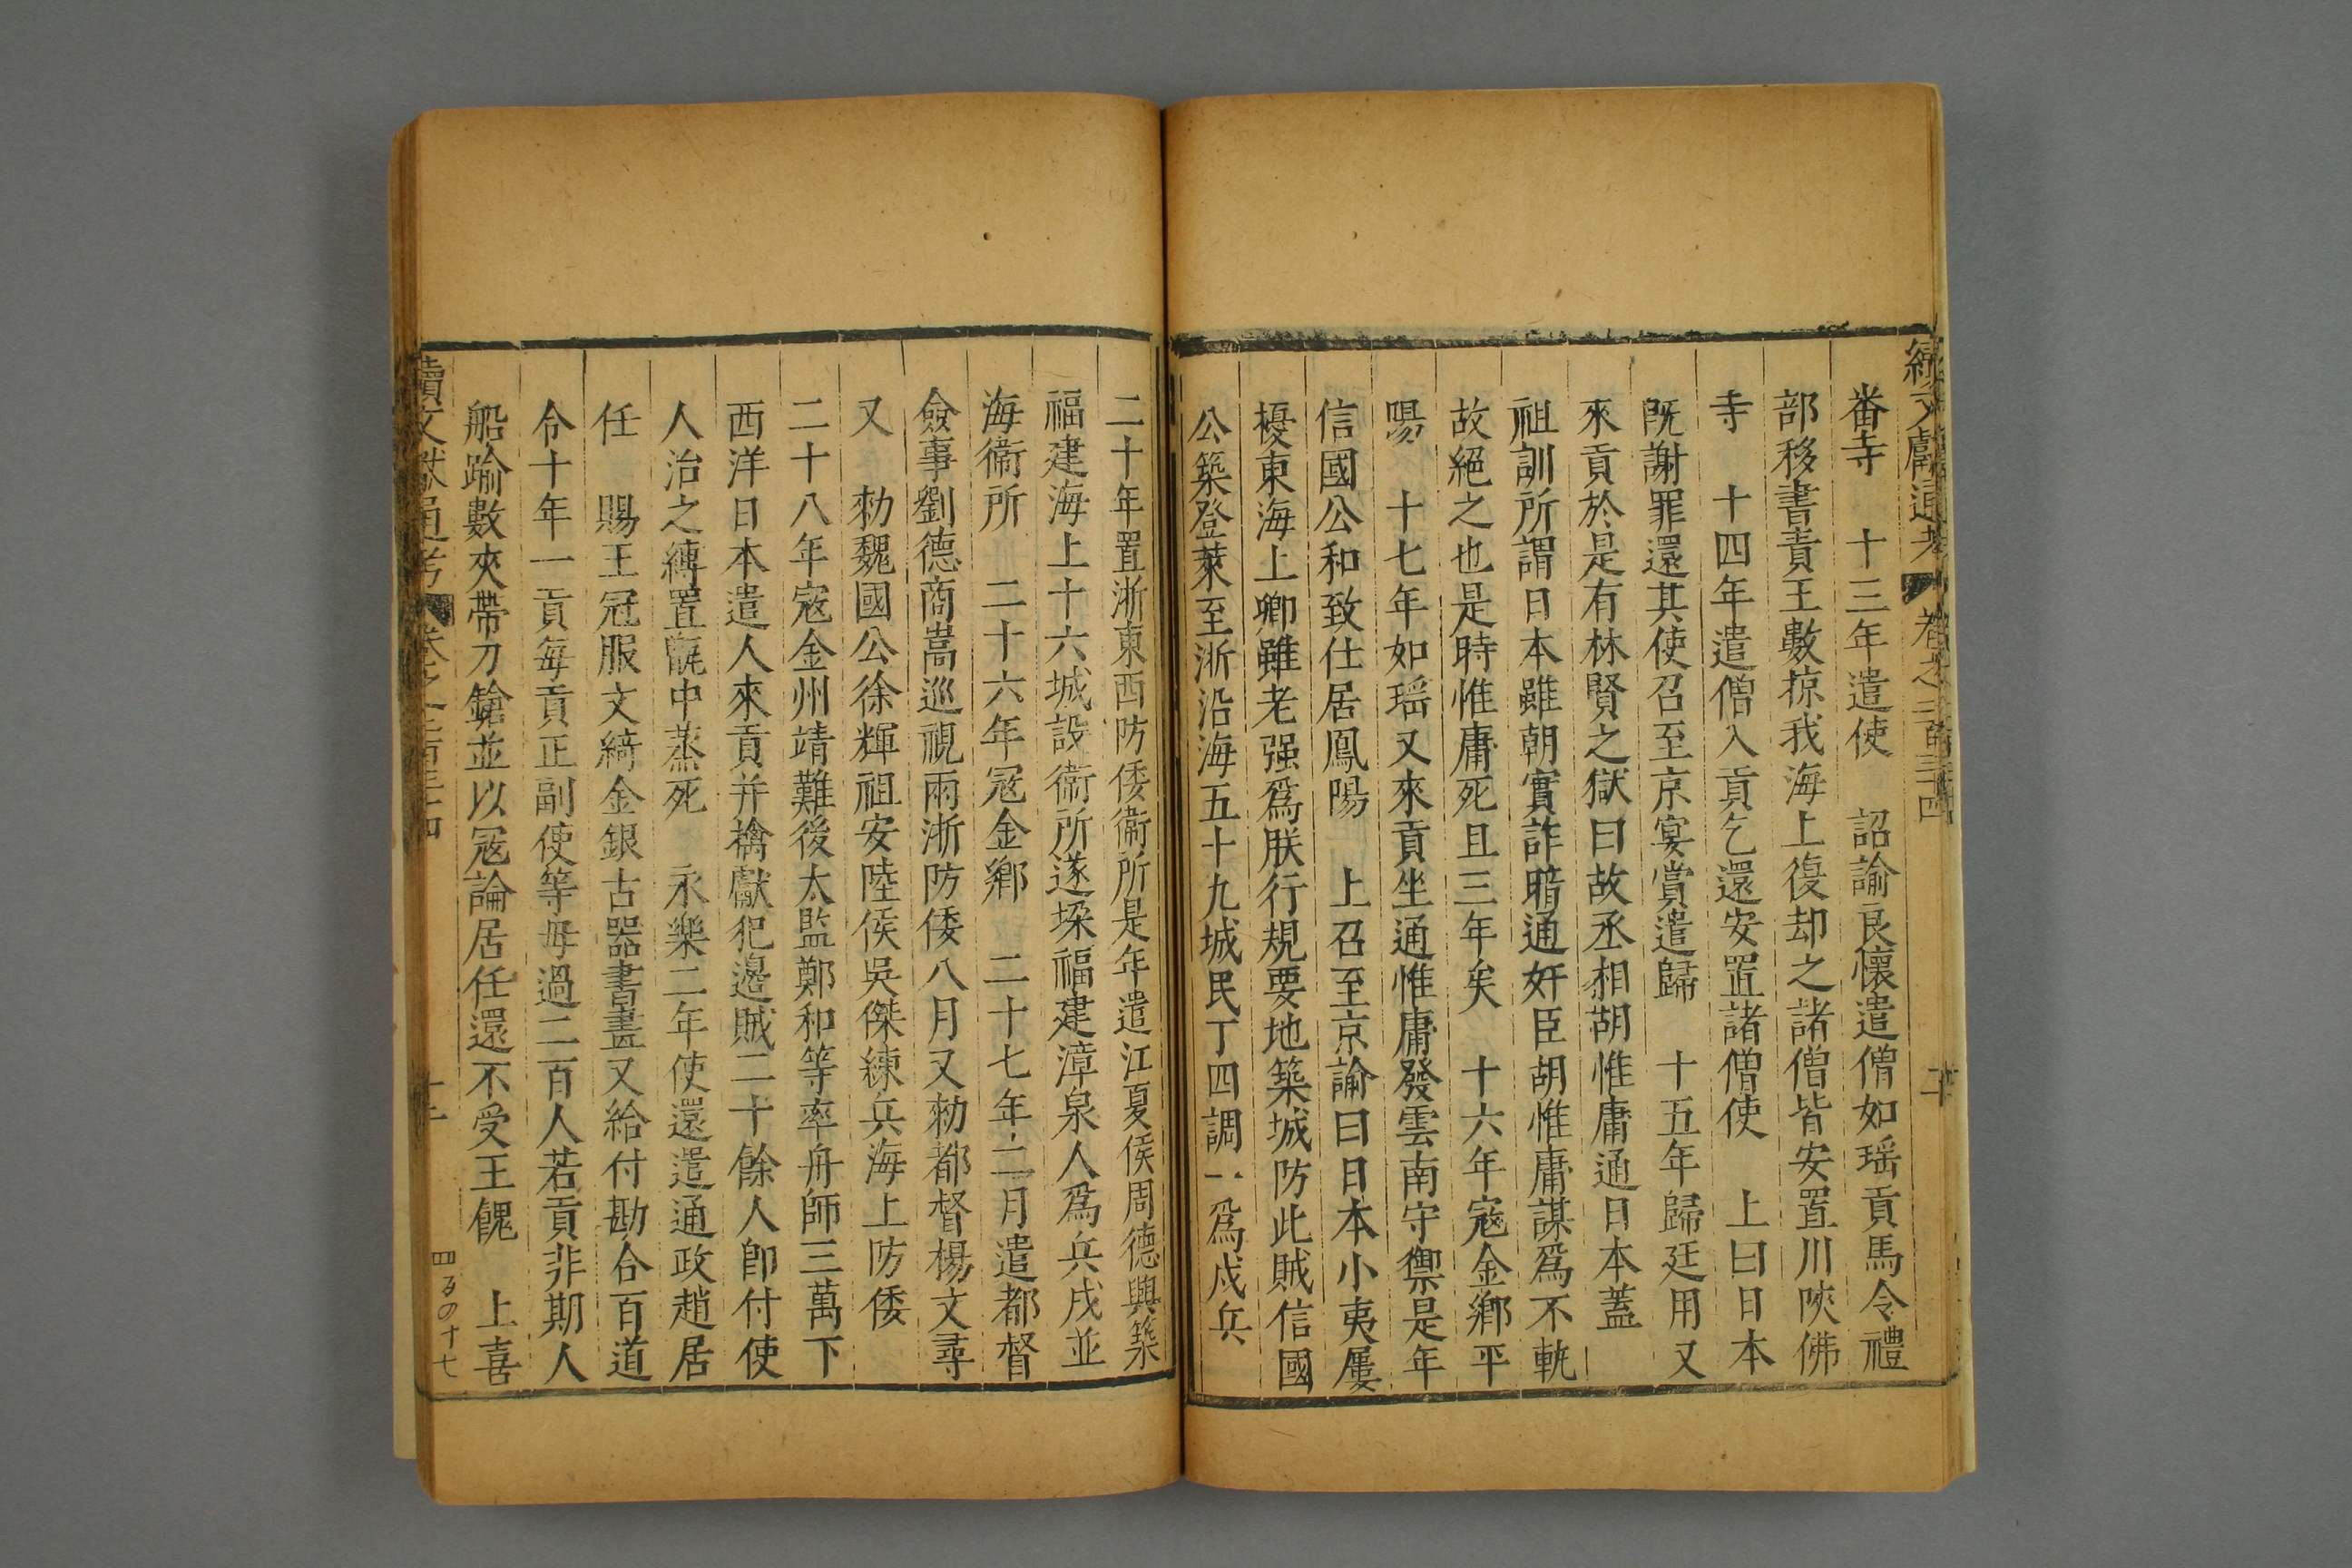 續文獻通考 卷之二百三十四 二十
番寺 十三年遣使 詔諭良懷遣僧如瑶貢馬令禮
部移書責王數掠我海上復却之諸僧皆安置川陜佛
寺 十四年遣僧入貢乞還安置諸僧使 上曰日本
旣謝罪還其使召至京宴賞遣歸 十五年歸廷用又
來貢於是有林賢之獄曰故丞相胡惟庸通日本蓋
祖訓所謂日本雖朝實詐暗通奸臣胡惟庸謀爲不軌
故絕之也是時惟庸死且三年矣 十六年寇金鄉平
陽 十七年如瑶又來貢坐通惟庸發雲南守禦是年
信國公和致仕居鳳陽 上召至京諭曰日本小夷屢
擾東海上卿雖老强爲朕行規要地築城防此賊信國
公築登萊至浙沿海五十九城民丁四調一爲戍兵
二十年置浙東西防倭衞所是年遣江夏侯周德興築
福建海上十六城設衞所遂垜福建漳泉人爲兵戍並
海衞所 二十六年寇金鄉 二十七年二月遣都督
僉事劉德商暠巡視兩浙防倭八月又勑都督楊文尋
又 勑魏國公徐輝祖安陸侯吳傑練兵海上防倭
二十八年寇金州靖難後太監鄭和等率舟師三萬下
西洋日本遣人來貢并擒獻犯邊賊二十餘人卽付使
人治之縛置甑中蒸死 永樂二年使還遣通政趙居
任 賜王冠服文綺金銀古器書畫又給付勘合百道
令十年一貢每貢正副使等毋過二百人若貢非期人
船踰數夾帶刀鎗並以寇論居任還不受王餽 上喜
續文獻通考 卷之二百三十四
四ヨの十七